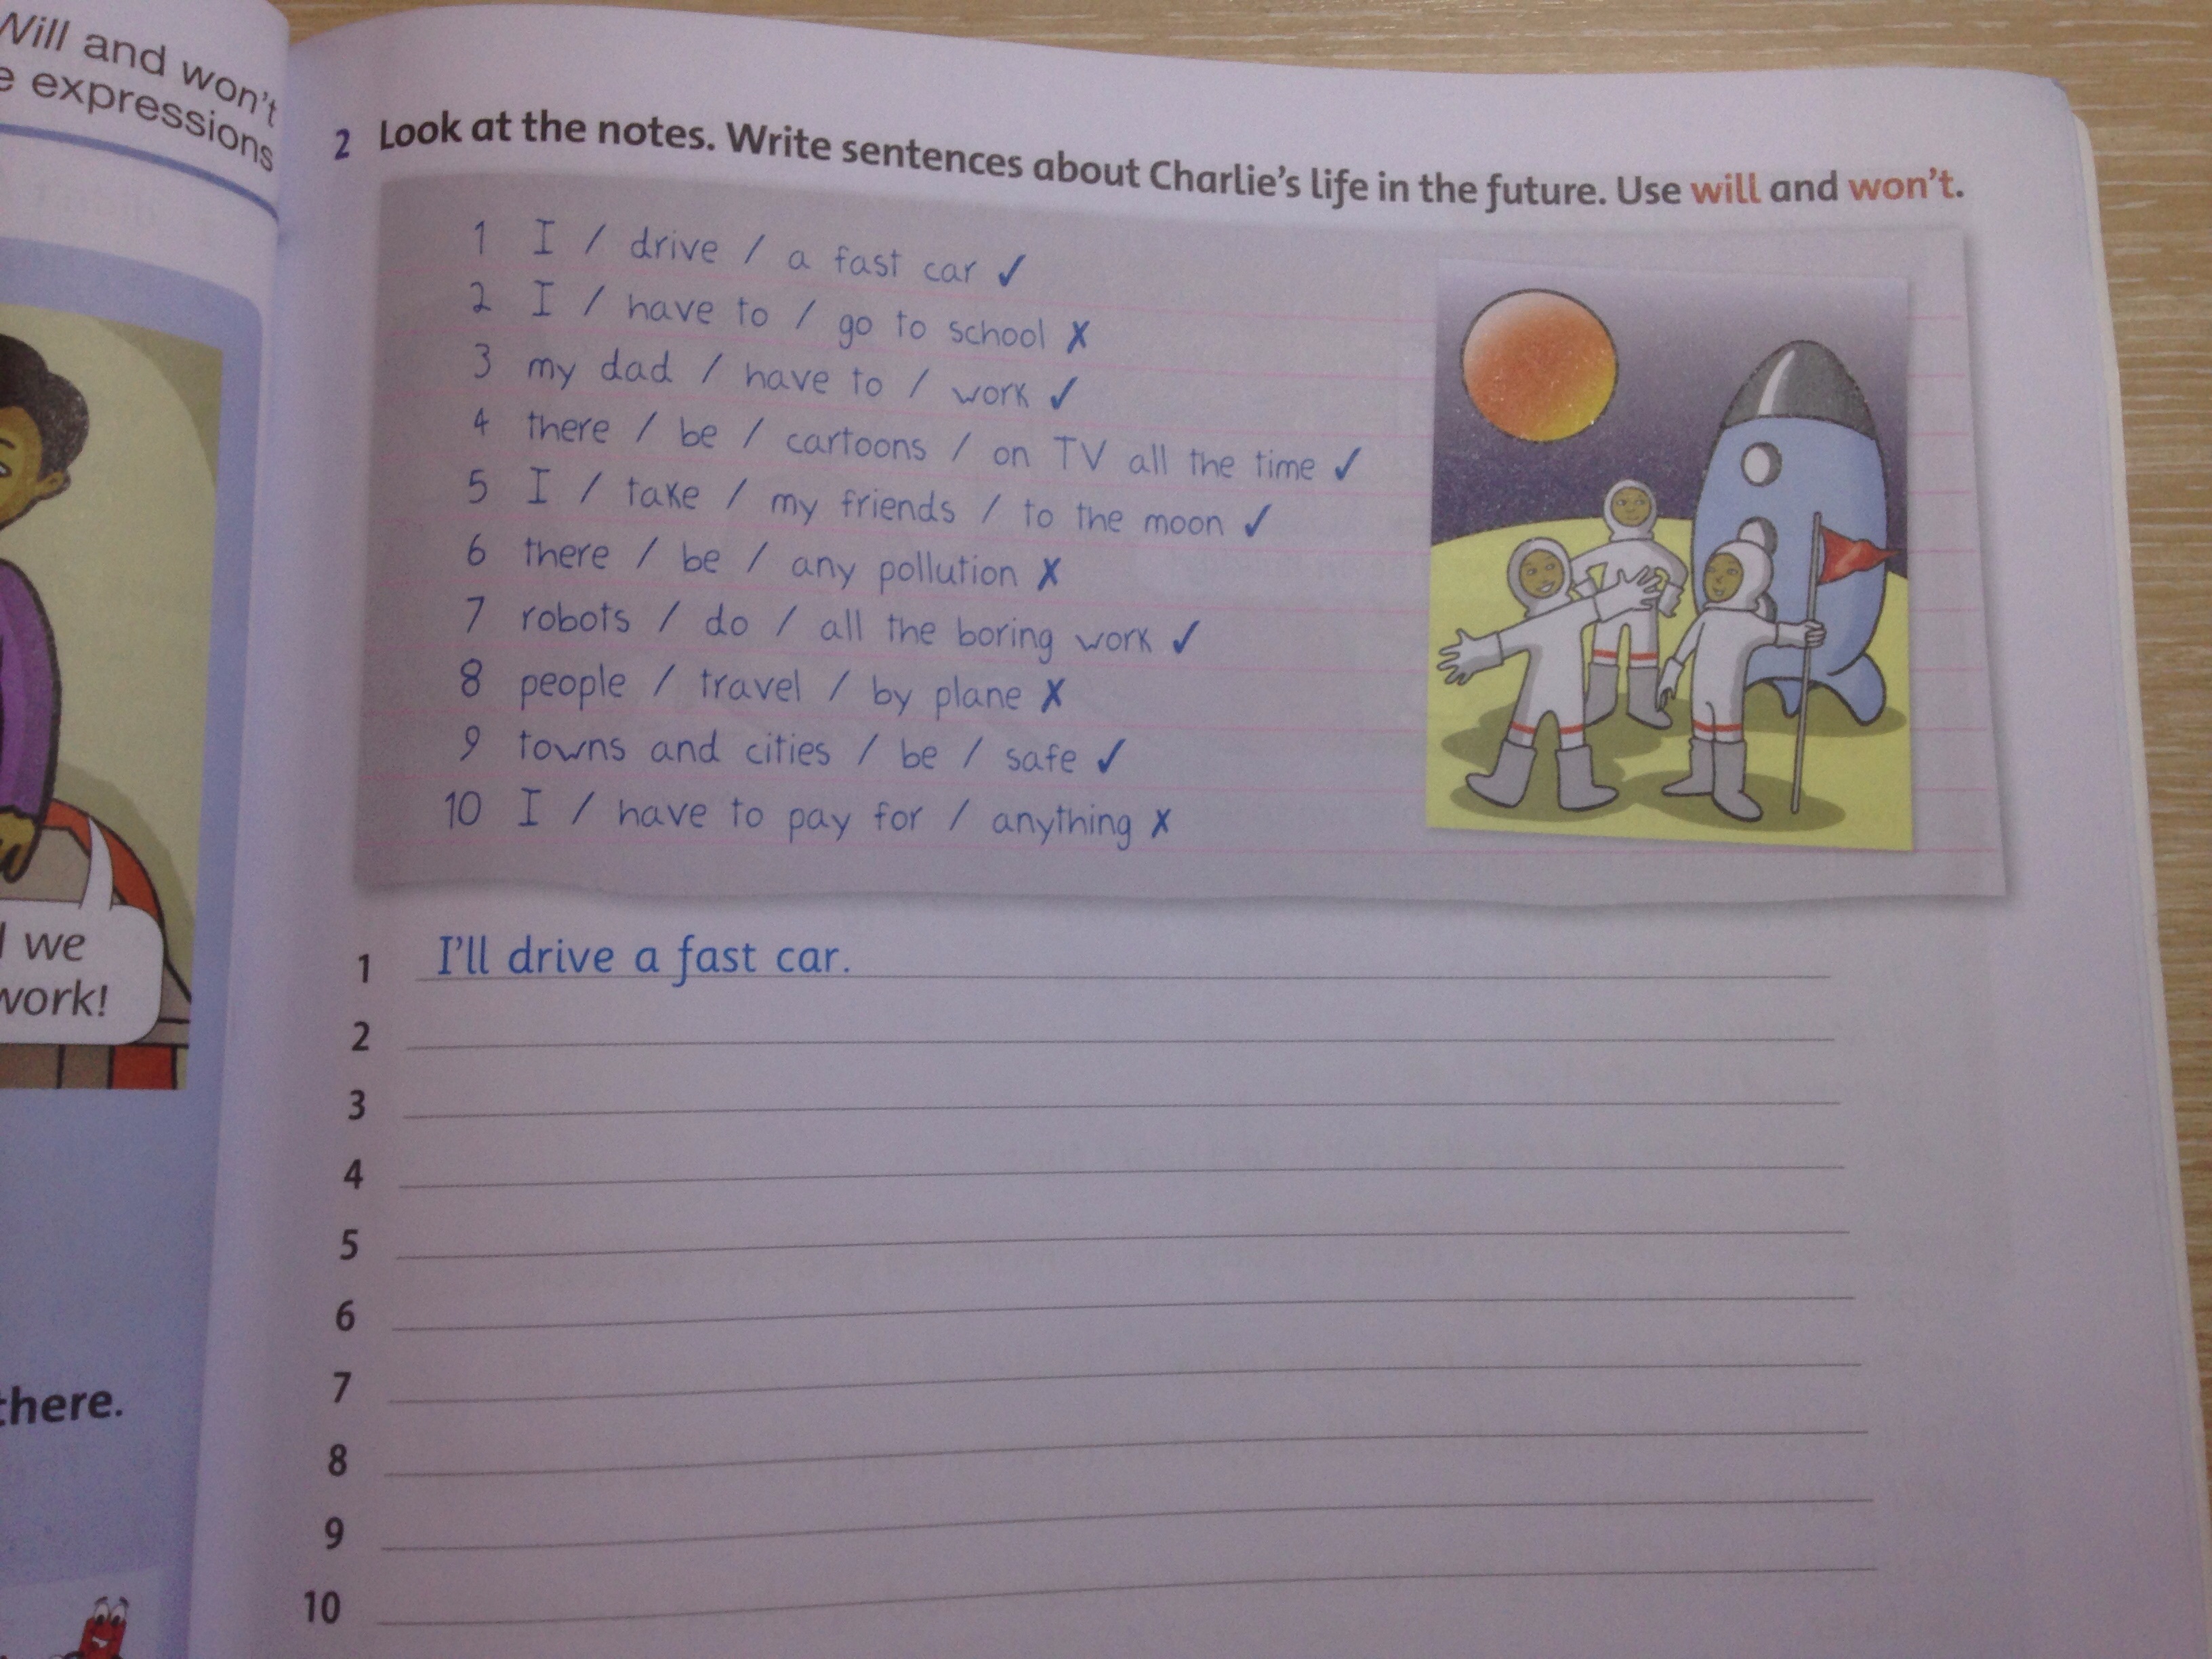 Will and won't
expressions
2 Look at the notes. Write sentences about Charlie's life in the future. Use will and won't.
1 I / drive / a fast car ✓
2 I / have to / go to school ✗
3 my dad / have to / work ✓
4 there / be / cartoons / on TV all the time ✓
5 I / take / my friends / to the moon ✓
6 there / be / any pollution ✗
7 robots / do / all the boring work ✓
8 people / travel / by plane ✗
9 towns and cities / be / safe ✓
10 I / have to pay for / anything ✗
we
work!
there.
1 I'll drive a fast car.
2
3
4
5
6
7
8
9
10